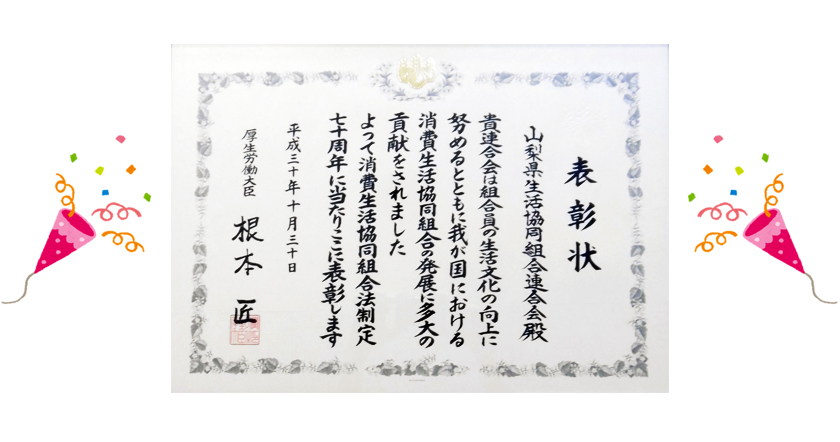 表彰状
山梨県生活協同組合連合会殿
貴連合会は組合員の生活文化の向上に
努めるとともに我が国における
消費生活協同組合の発展に多大の
貢献をされました
よって消費生活協同組合法制定
七十周年に当たりここに表彰します
平成三十年十月三十日
厚生労働大臣 根本 匠